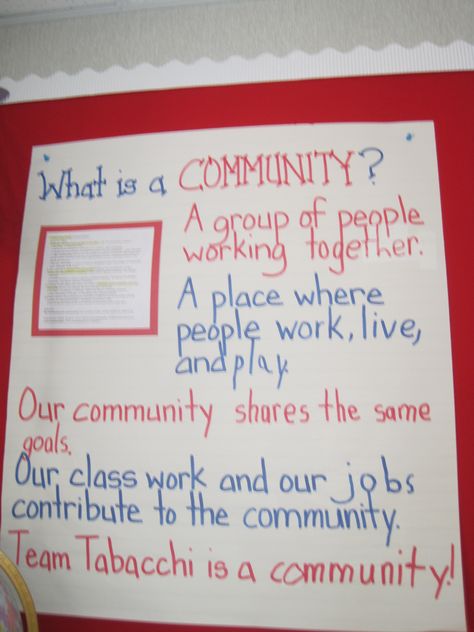 What is a COMMUNITY?
A group of people
working together.
A place where
people work, live,
and play.
Our community shares the same
goals.
Our class work and our jobs
contribute to the community.
Team Tabacchi is a community!